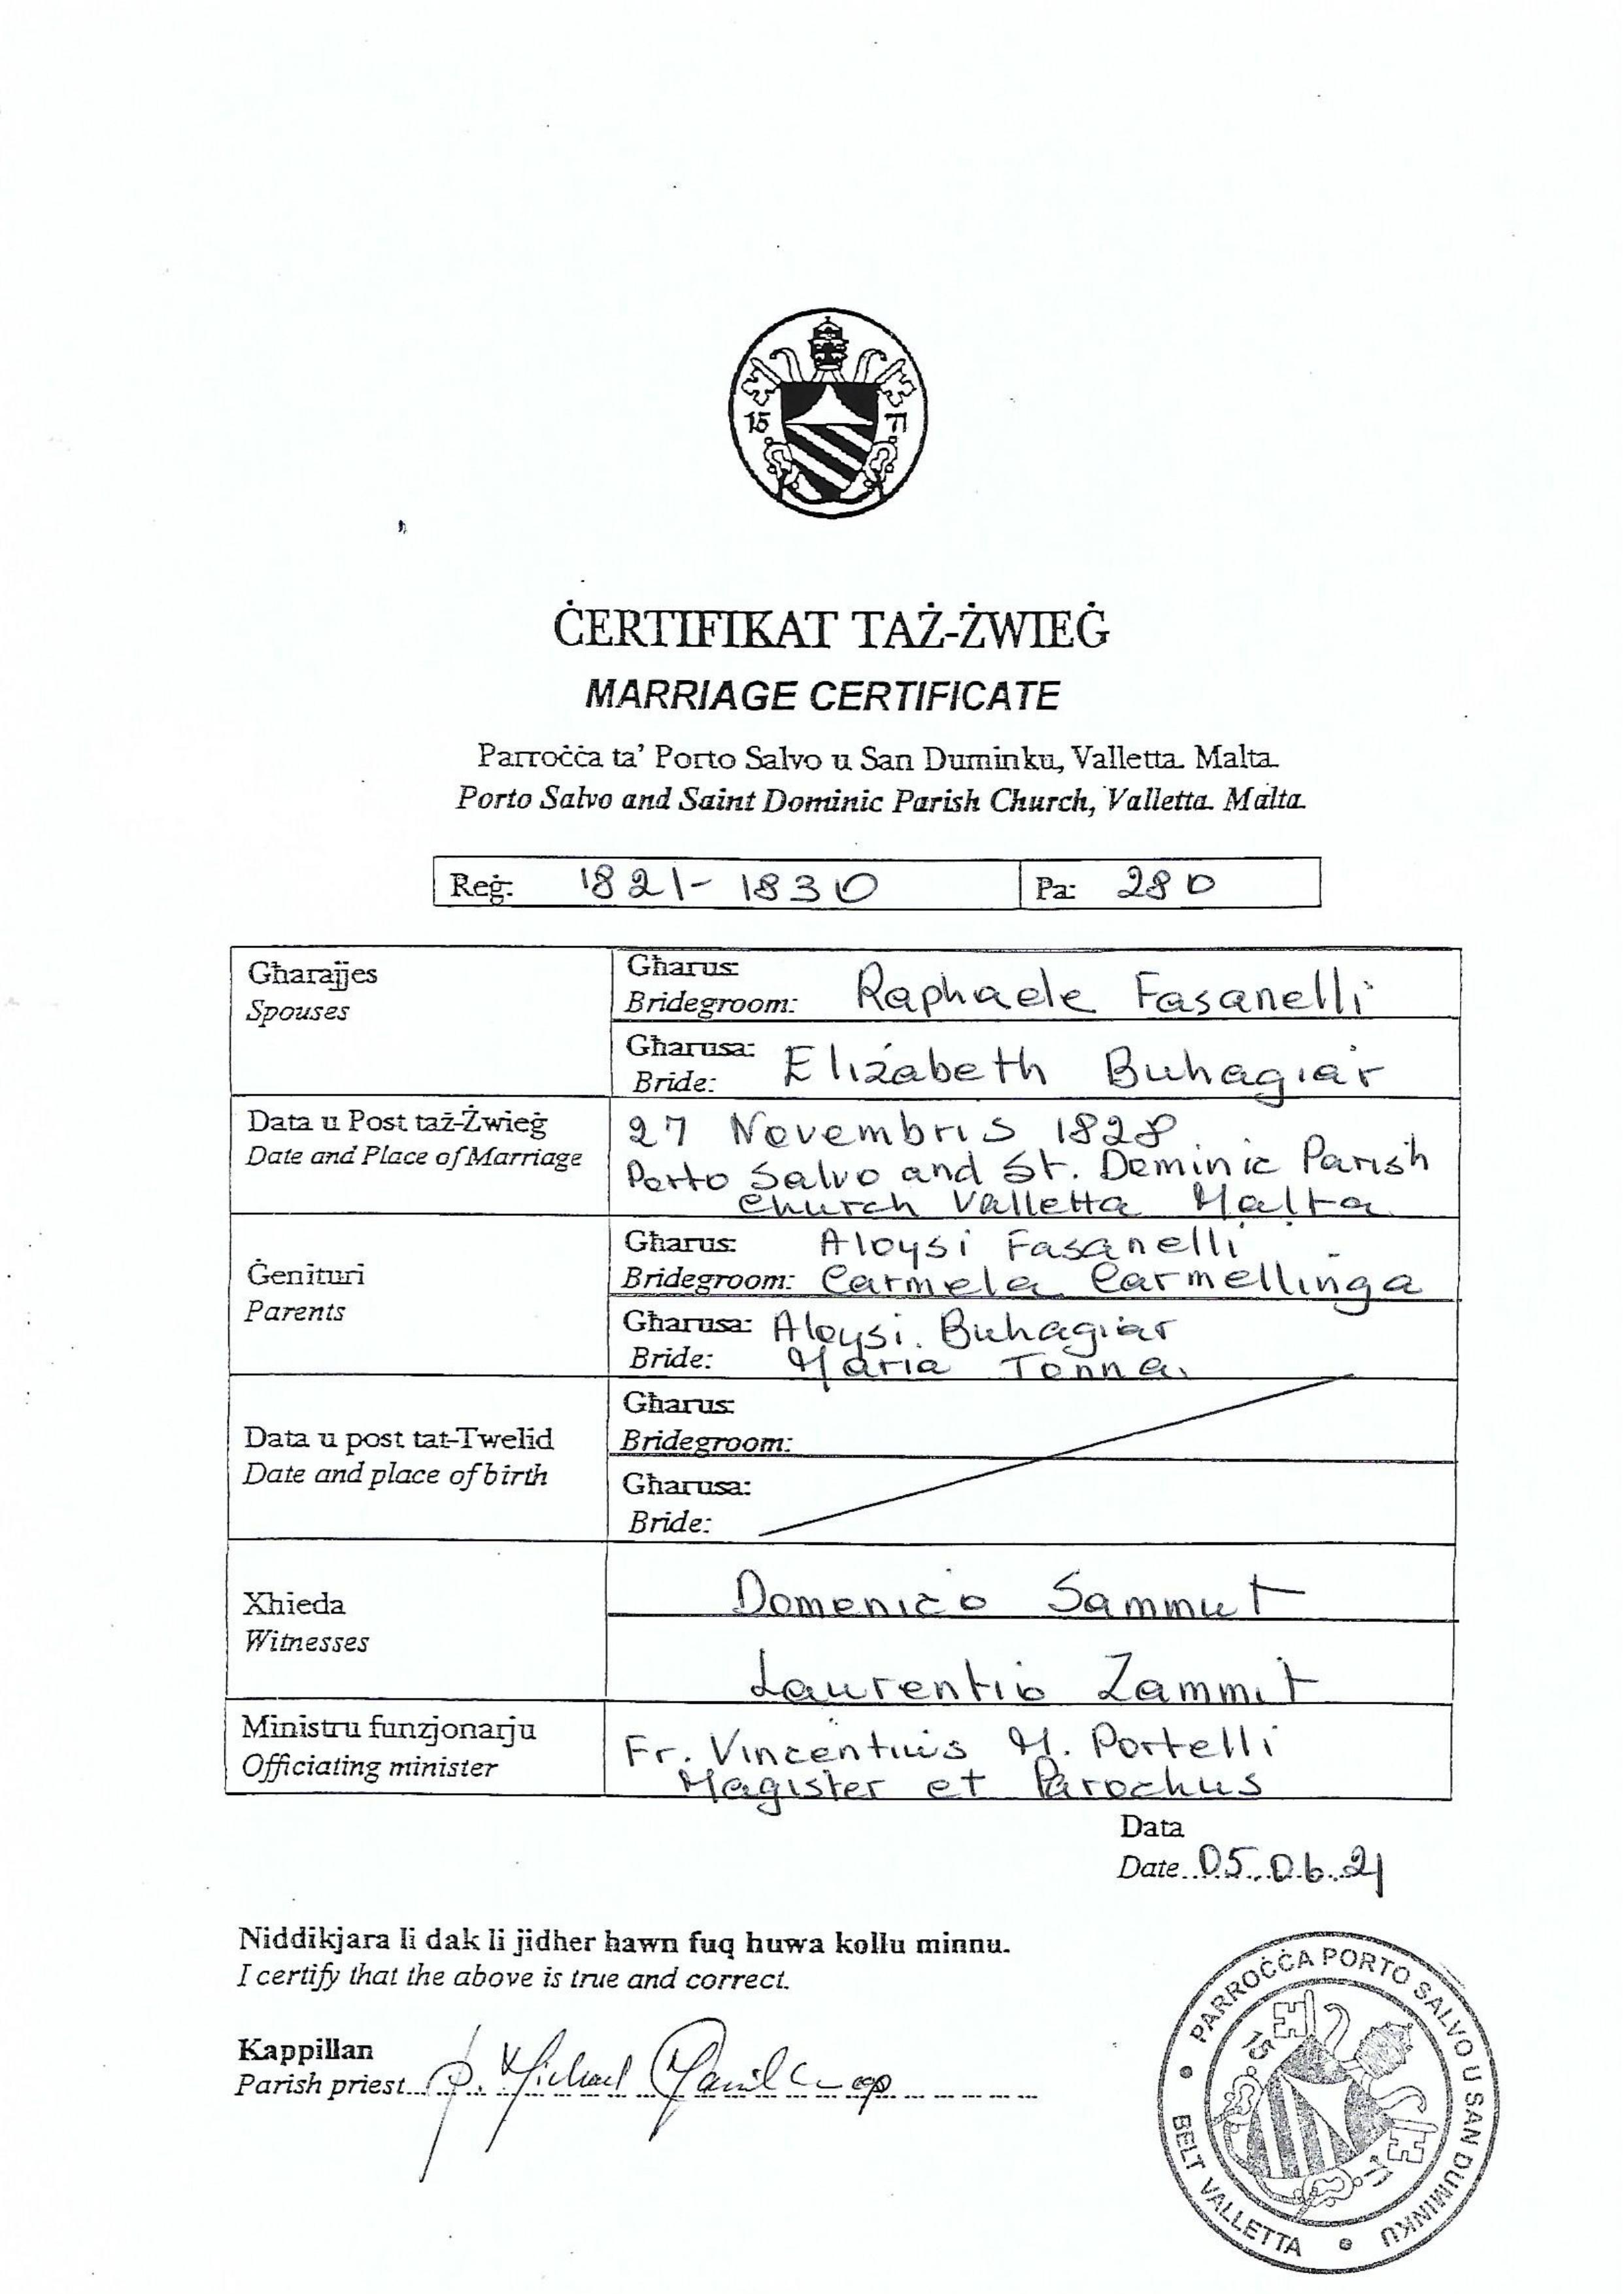 15 71
ĊERTIFIKAT TAŻ-ŻWIEĠ
MARRIAGE CERTIFICATE
Parroċċa ta' Porto Salvo u San Duminku, Valletta. Malta.
Porto Salvo and Saint Dominic Parish Church, Valletta. Malta.
Reġ: 1821-1830 Pa: 280
Għarajjes
Spouses
Għarus:
Bridegroom: Raphaele Fasanelli
Għarusa:
Bride: Elizabeth Buhagiar
Data u Post taż-Żwieġ
Date and Place of Marriage
27 Novembris 1828.
Porto Salvo and St. Dominic Parish
Church Valletta Malta
Ġenituri
Parents
Għarus: Aloysi Fasanelli
Bridegroom: Carmela Carmellinga
Għarusa: Aloysi Buhagiar
Bride: Maria Tonna.
Data u post tat-Twelid
Date and place of birth
Għarus:
Bridegroom:
Għarusa:
Bride:
Xhieda
Witnesses
Domenico Sammut
Laurentio Zammit
Ministru funzjonarju
Officiating minister
Fr. Vincentius M. Portelli
Magister et Parochus
Data
Date 05.06.21
Niddikjara li dak li jidher hawn fuq huwa kollu minnu.
I certify that the above is true and correct.
Kappillan
Parish priest P. Michael
PARROĊĊA PORTO SALVO U SAN DUMINKU
BELT VALLETTA
15 71